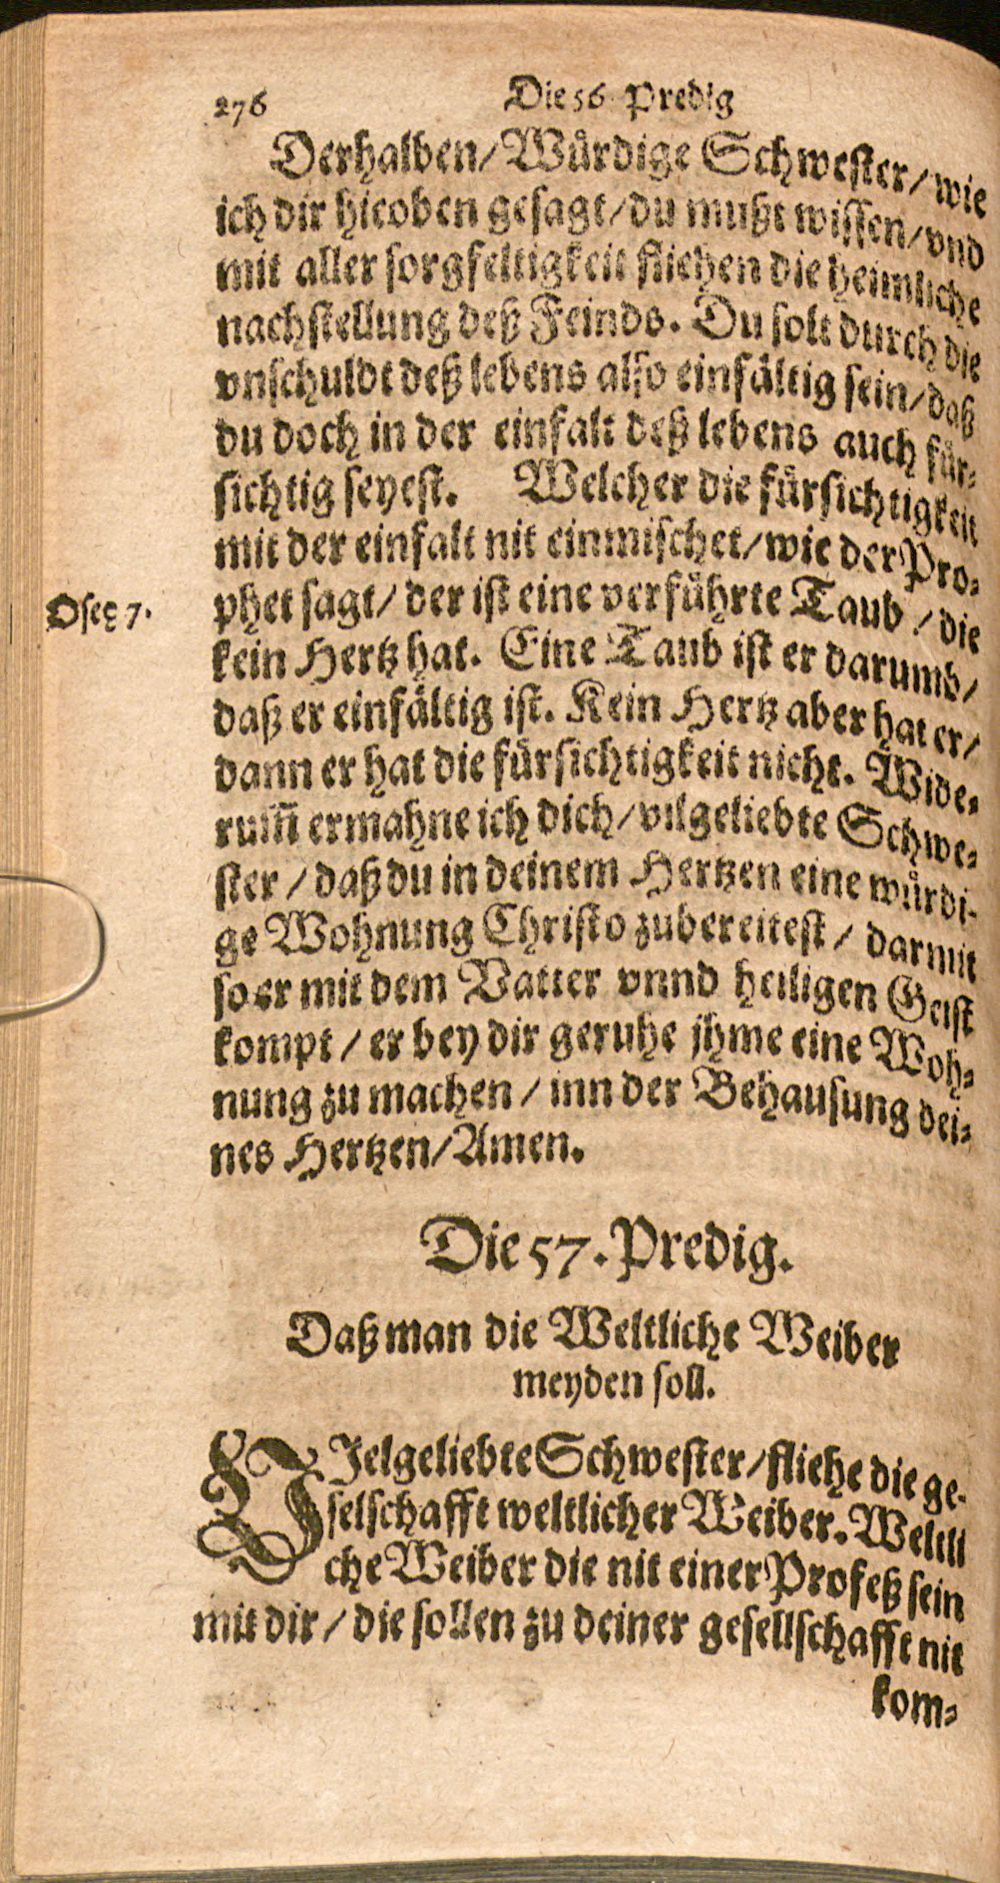 276 Die 56 Predig
Derhalben/ Würdige Schwester/ wie
ich dir hieoben gesagt/ du mußt wissen/ vnd
mit aller sorgfeltigkeit fliehen die heimliche
nachstellung deß Feinds. Du solt durch die
vnschuldt deß lebens also einfältig sein/ daß
du doch in der einfalt deß lebens auch für-
sichtig seyest. Welcher die fürsichtigkeit
mit der einfalt nit einmischet/ wie der Pro-
Oseę 7. phet sagt/ der ist eine verführte Taub/ die
kein Hertz hat. Eine Taub ist er darumb/
daß er einfältig ist. Kein Hertz aber hat er/
dann er hat die fürsichtigkeit nicht. Wide-
rum̃ ermahne ich dich/ vilgeliebte Schwe-
ster/ daß du in deinem Hertzen eine würdi-
ge Wohnung Christo zubereitest/ darmit
so er mit dem Vatter vnnd heiligen Geist
kompt/ er bey dir geruhe jhme eine Woh-
nung zu machen/ inn der Behausung dei-
nes Hertzen/ Amen.
Die 57. Predig.
Daß man die Weltliche Weiber
meyden soll.
VJelgeliebte Schwester/ fliehe die ge-
selschafft weltlicher Weiber. Weltli
che Weiber die nit einer Profeß sein
mit dir/ die sollen zu deiner gesellschafft nit
kom-